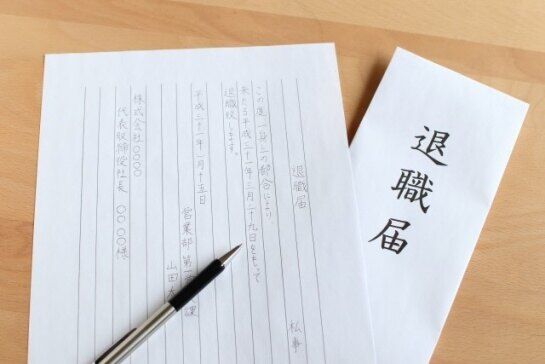 退職届
私事
この度一身上の都合により、
来たる平成三十一年三月二十九日をもって
退職致します。
平成三十一年一月十五日
営業部 第一 課
山田
株式会社〇〇〇〇
代表取締役社長 〇〇〇〇様
退職届